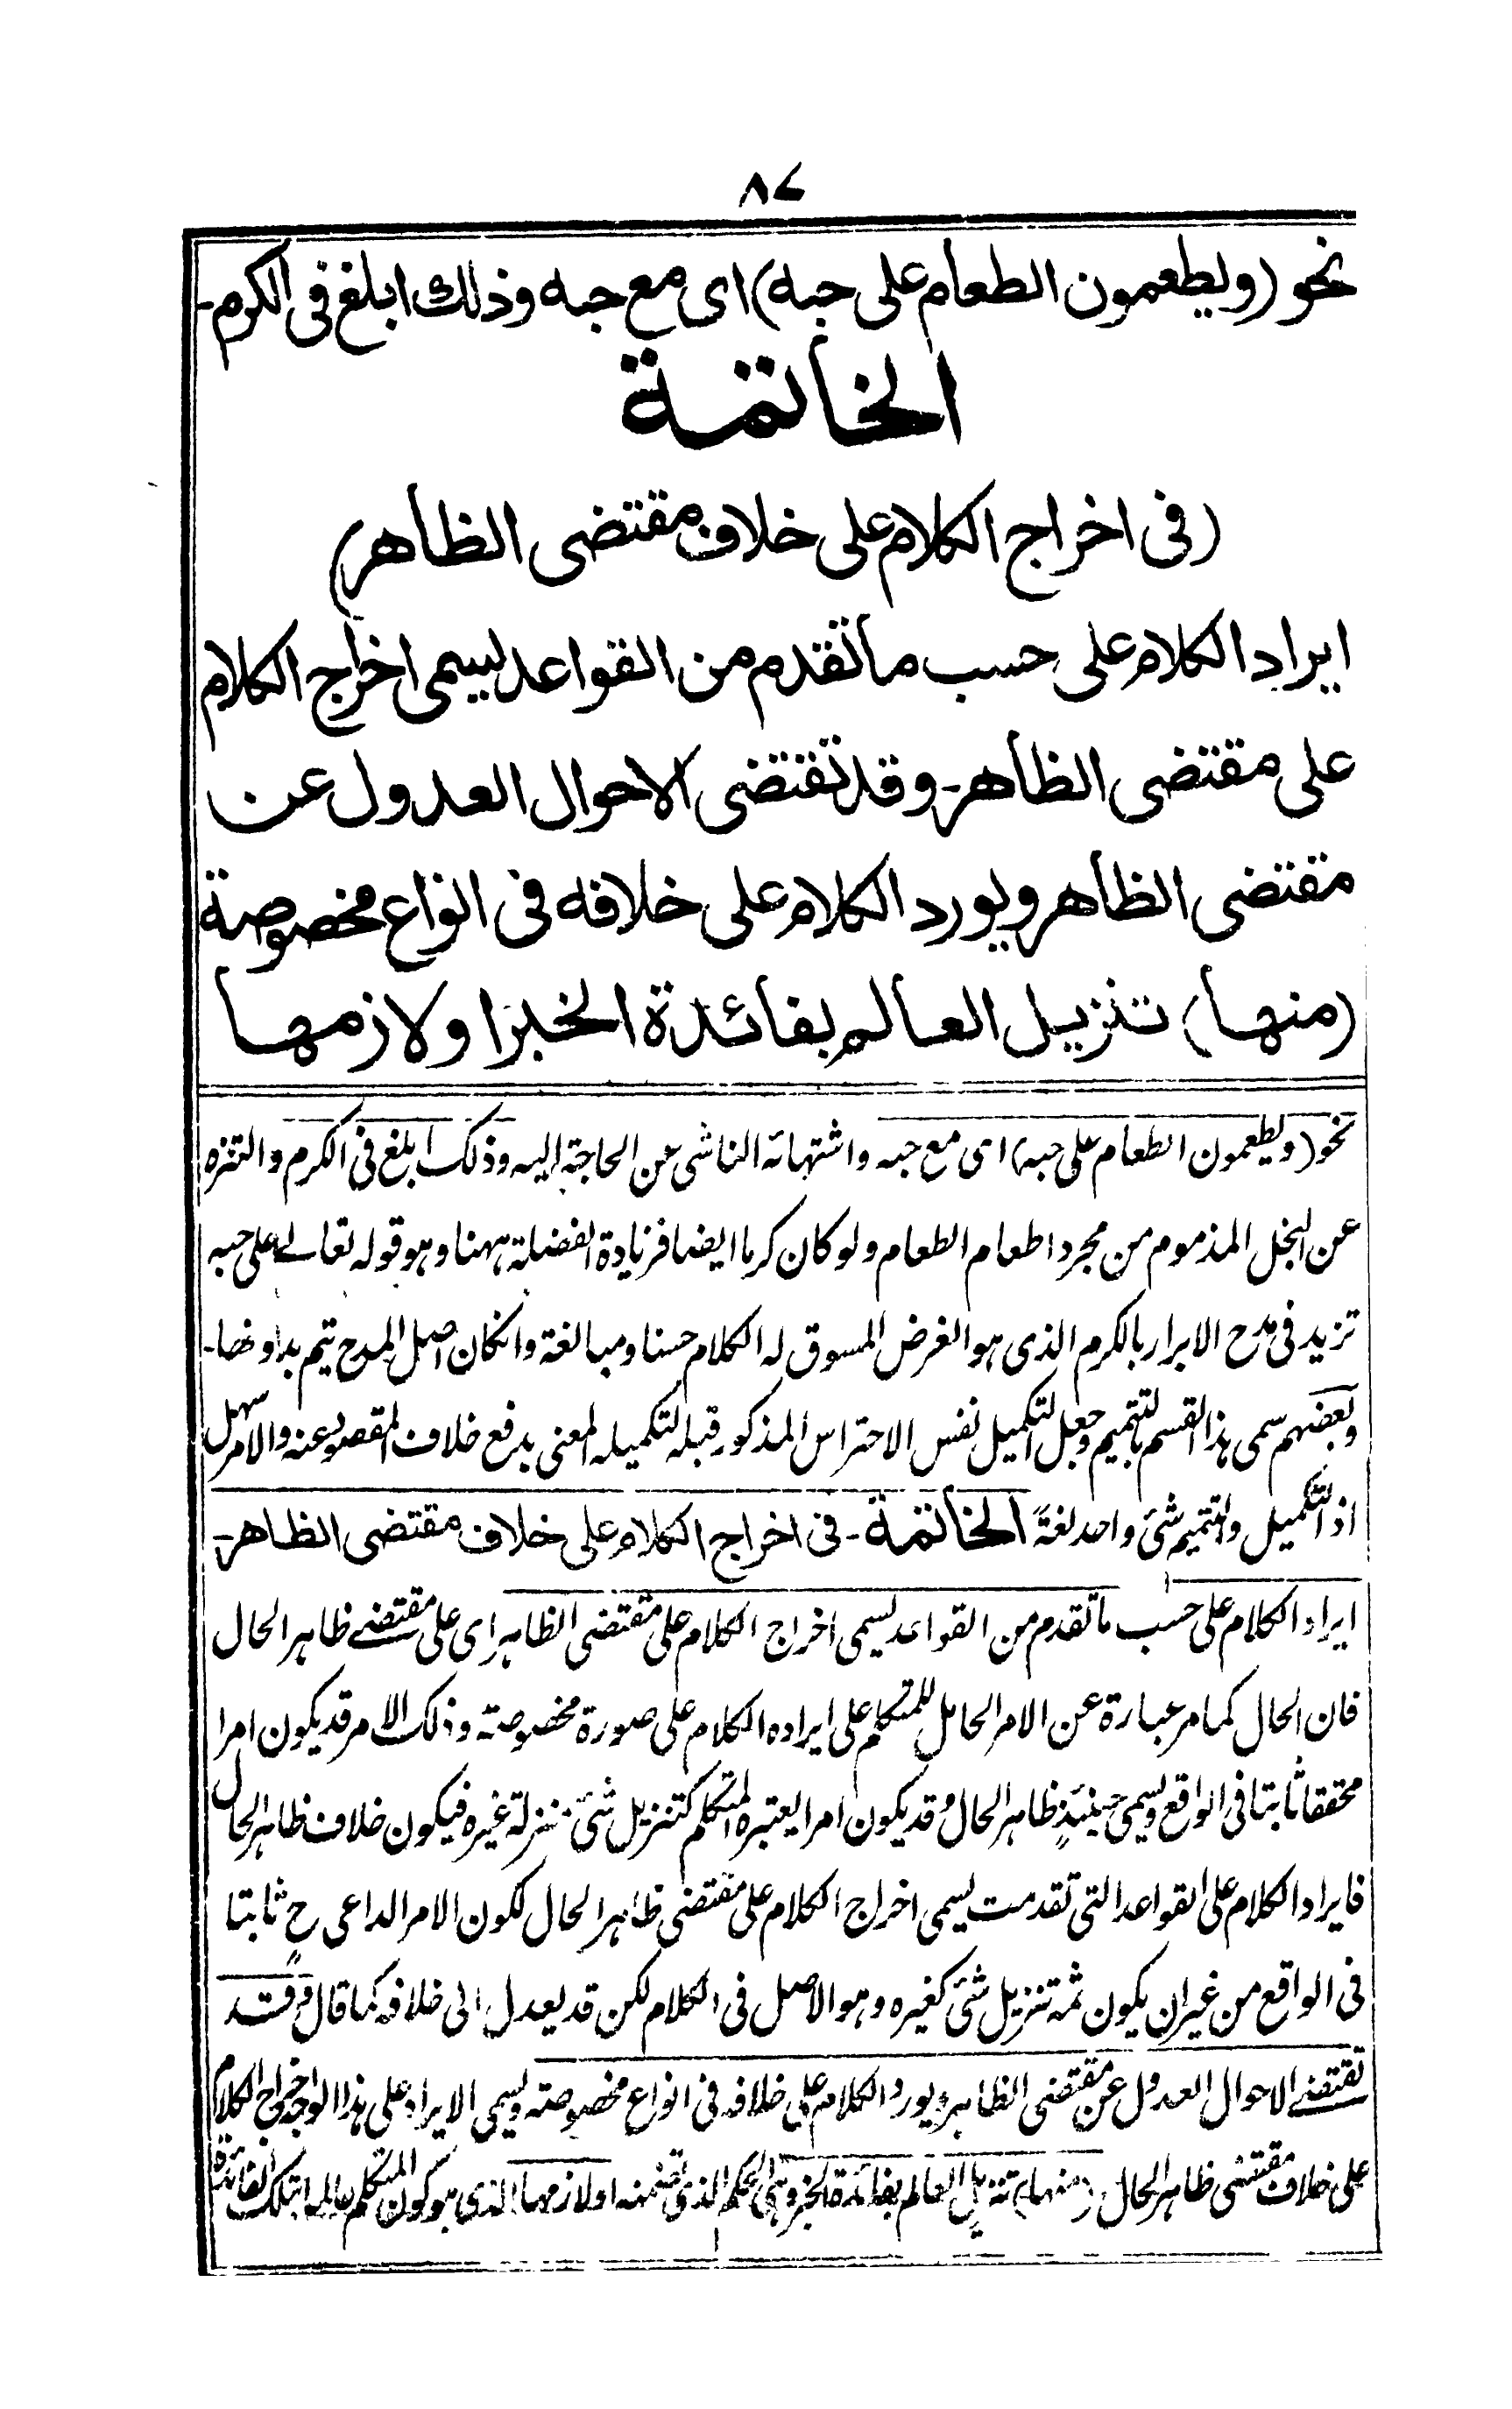 ٨٧
نحو (ويطعمون الطعام على حبه) اى مع حبه وذلك ابلغ فى الكرم-
الخاتمة
(فى اخراج الكلام على خلاف مقتضى الظاهر)
ايراد الكلام على حسب ما تقدم من القواعد يسمى اخراج الكلام
على مقتضى الظاهر- وقد تقتضى الاحوال العدول عن
مقتضى الظاهر ويورد الكلام على خلافه فى انواع مخصوصة
(منها) تنزيل العالم بفائدة الخبر او لازمها
نحو (ويطعمون الطعام على حبه) اى مع حبه واشتهائه الناشى عن الحاجة اليه وذلك ابلغ فى الكرم والتنزه
عن البخل المذموم من مجرد اطعام الطعام ولو كان كرما ايضا فزيادة الفضلة ههنا وهو قوله تعالے على حبه
تزيد فى مدح الابرار بالكرم الذى هو الغرض المسوق له الكلام حسنا ومبالغة وان كان اصل المدح يتم بدونها-
وبعضهم سمى هذا القسم بالتتميم وجعل التكميل نفس الاحتراس المذكور قبله لتكميله المعنى بدفع خلاف المقصود عنه والامر سهل
اذ التكميل والتتميم شئ واحد لغةً الخاتمة- فى اخراج الكلام على خلاف مقتضى الظاهر-
ايراد الكلام على حسب ما تقدم من القواعد يسمى اخراج الكلام على مقتضى الظاهر اى على مقتضے ظاهر الحال
فان الحال كما مر عبارة عن الامر الحامل للمتكلم على ايراده الكلام على صورة مخصوصة وذلك الامر قد يكون امرا
محققا ثابتا فى الواقع ويسمى حينئذٍ ظاهر الحال وقد يكون امرا يعتبره المتكلم كتنزيل شئ منزلة غيره فيكون خلاف ظاهر الحال
فايراد الكلام على القواعد التى تقدمت يسمى اخراج الكلام على مقتضى ظاهر الحال لكون الامر الداعى ح ثابتا
فى الواقع من غير ان يكون ثمة تنزيل شئ كغيره وهو الاصل فى الكلام لكن قد يعدل الى خلافه كما قال وقد
تقتضے الاحوال العدول عن مقتضى الظاهر ويورد الكلام على خلافه فى انواع مخصوصة ويسمى الايراد على هذا الوجه اخراج الكلام
على خلاف مقتضى ظاهر الحال (منها) تنزيل العالم بفائدة الخبر وهى الحكم الذى تضمنه او لازمها الذى هو كون المتكلم عالما بتلك الفائدة